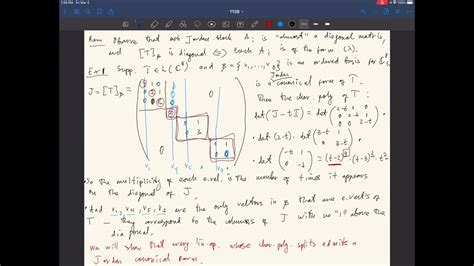 1:08 PM Fri Mar 4
115B
Rem: Observe that each Jordan block A_i is "almost" a diagonal matrix,
and [T]_β is diagonal ⟺ each A_i is of the form (λ).
Ex 1 Supp. T ∈ L(C^8) and β = {v_1, ..., v_8} is an ordered basis for C^8
Jordan
J = [T]_β =
is a canonical form of T.
Then the char. poly of T:
det(J - tI) = det
2-t 1 0
0 2-t 1
0 0 2-t
det(2-t) · det
3-t 1
0 3-t
det
-t 1
0 -t
= (t-2)^4 (t-3)^2 t^2
2 1 0
0 2 1
0 0 2
2
3 1
0 3
0 1
0 0
0
0
v_1 v_4
So the multiplicity of each e.val. is the number of times it appears
on the diagonal of J.
And v_1, v_4, v_5, v_7 are the only vectors in β that are e.vects of
T — they correspond to the columns of J with no "1" above the
diagonal.
We will show that every lin. op. whose char. poly. splits admits a
Jordan canonical form.